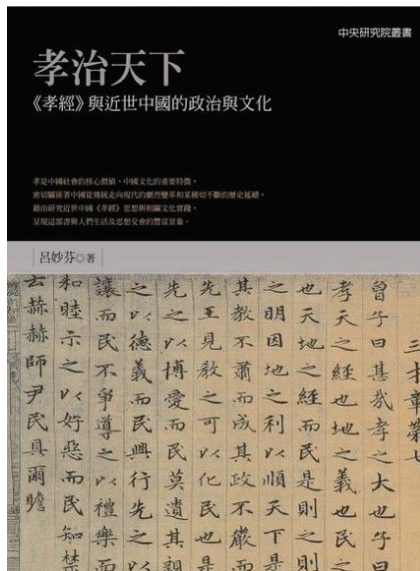 中央研究院叢書
孝治天下
《孝經》與近世中國的政治與文化
孝是中國社會的核心價值、中國文化的重要特徵，
密切關係著中國從傳統走向現代的劇烈變革和某種切不斷的歷史延續。
藉由研究近世中國《孝經》思想與相關文化實踐，
呈現這部書與人們生活及思想交會的豐富景象。
呂妙芬◎著
三才章第七
曾子曰甚哉孝之大也子曰
孝天之經也地之義也民之
也天地之經而民是則之則
之明因地之利以順天下是
其教不肅而成其政不嚴而
先王見教之可以化民也是
先之以博愛而民莫遺其親
之以德義而民興行先之以
讓而民不爭導之以禮樂而
和睦示之以好惡而民知禁
云赫赫師尹民具爾瞻